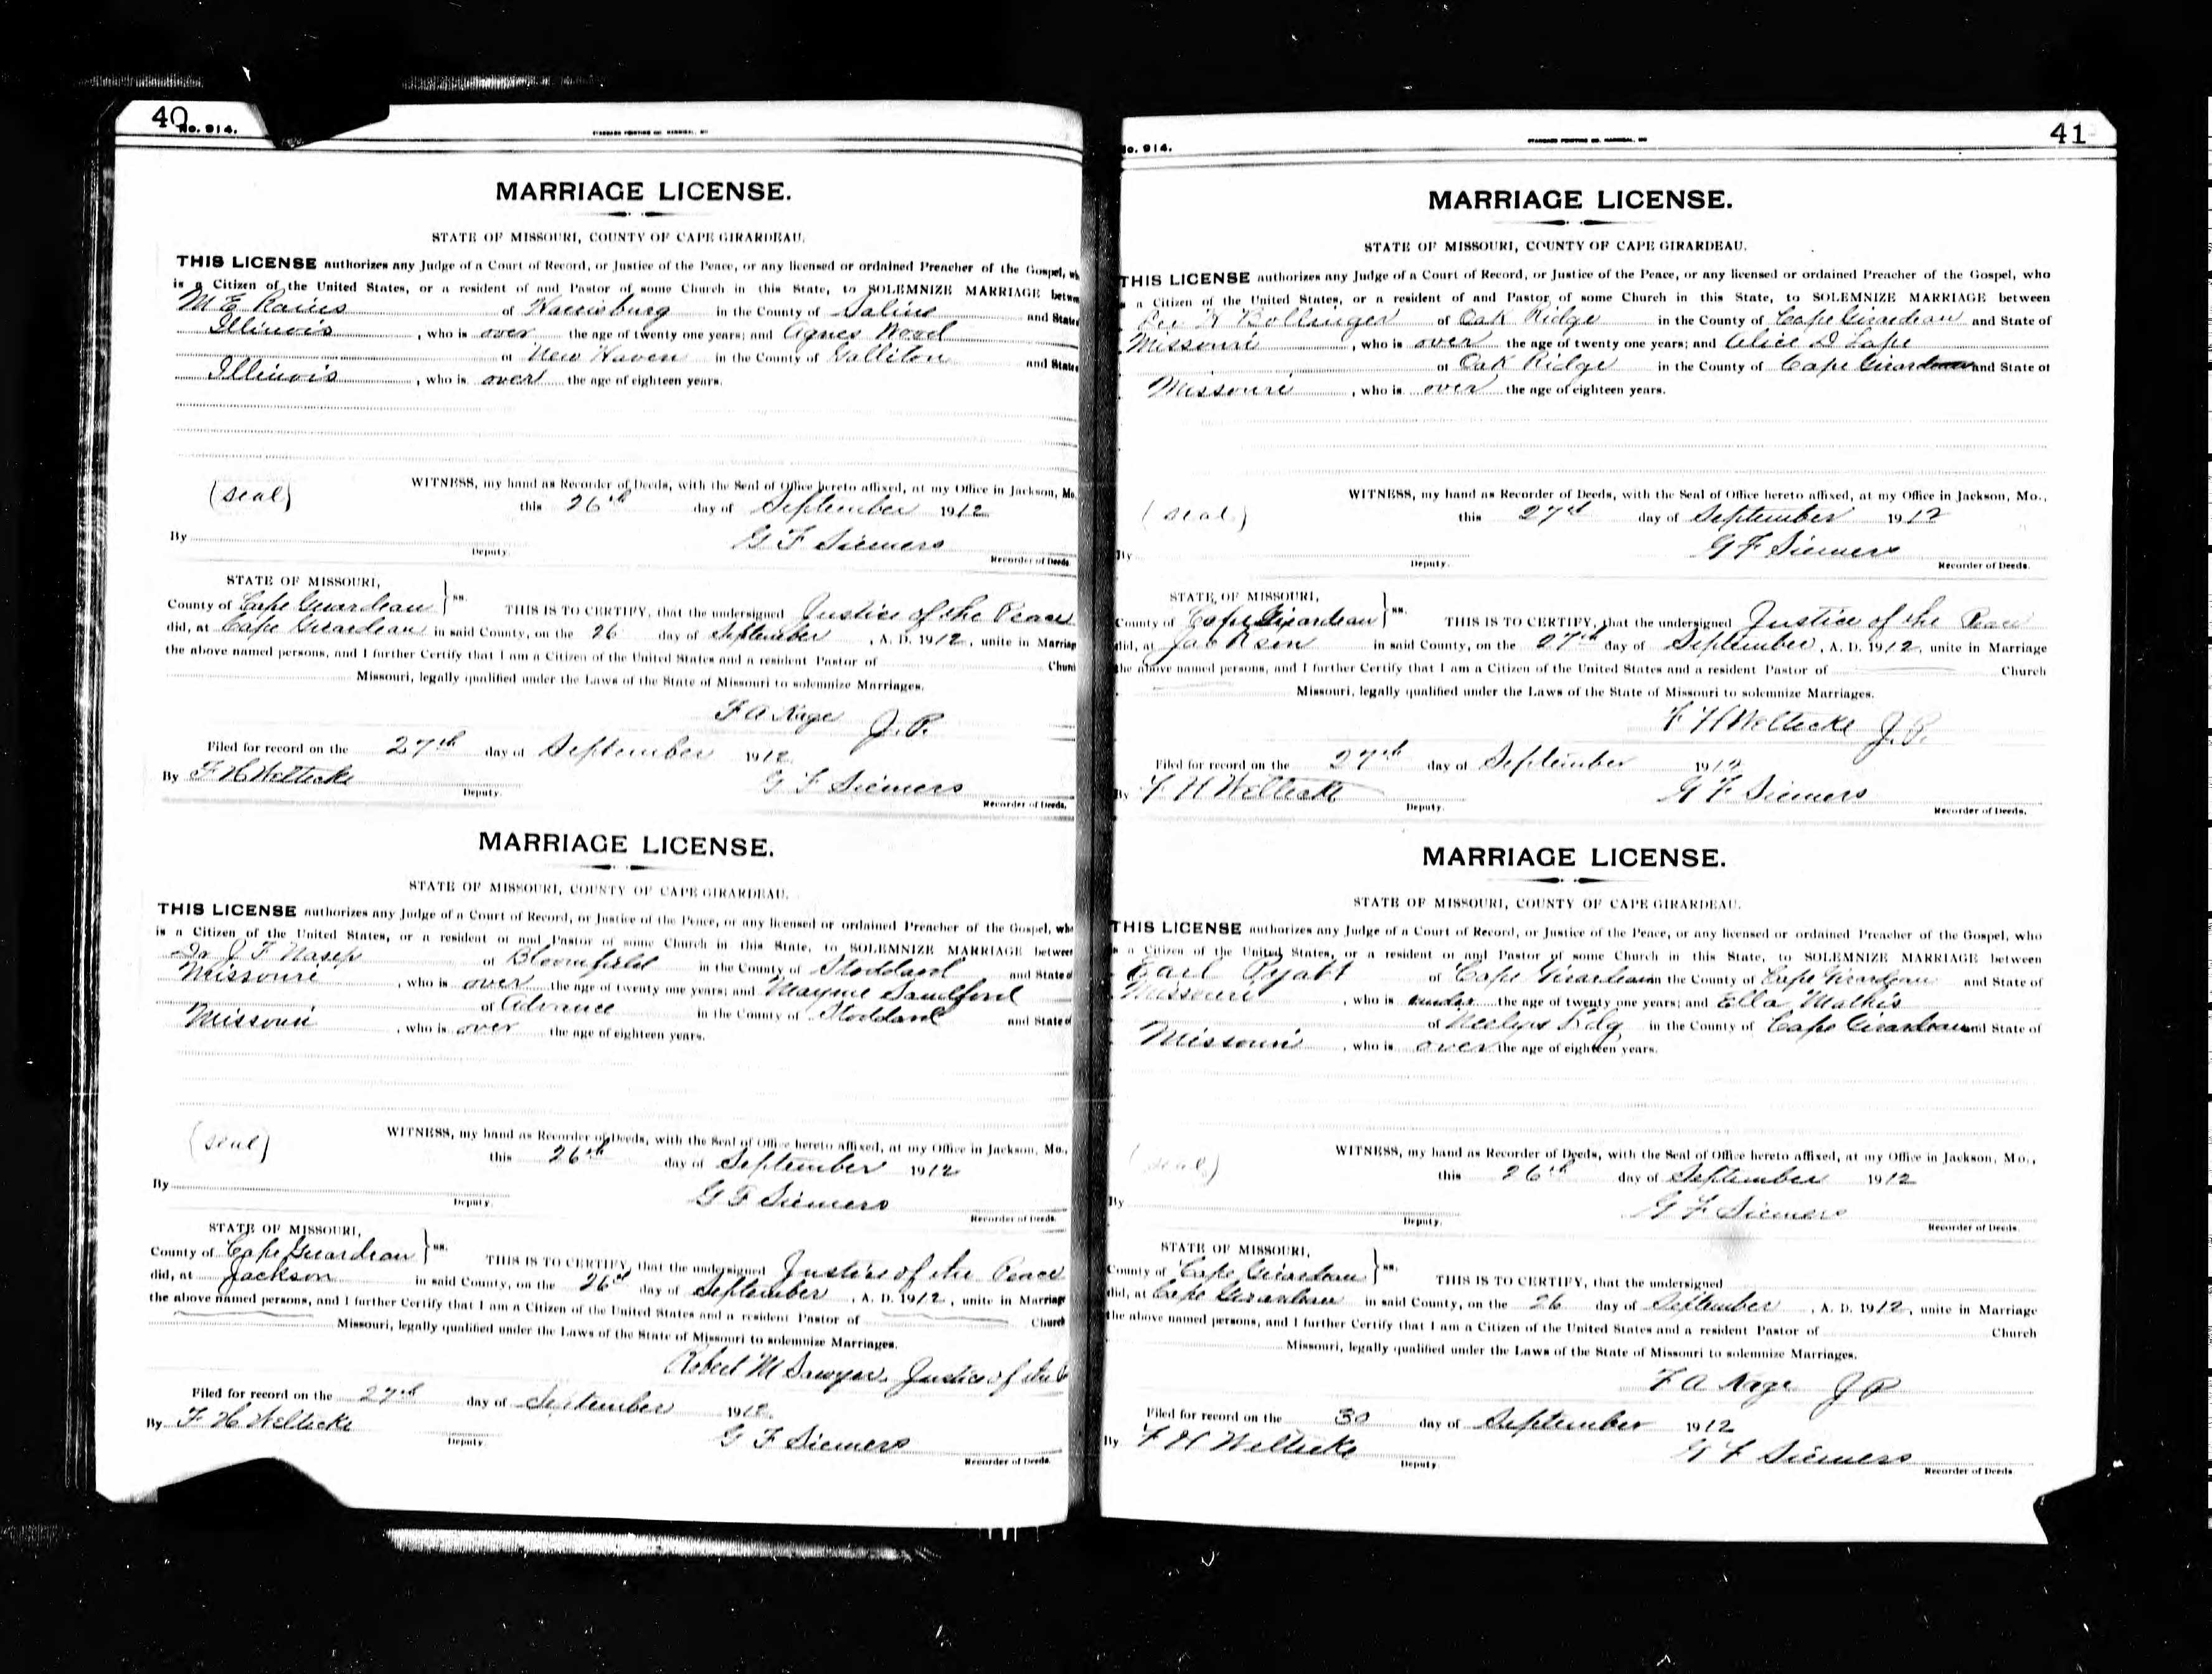 40
No. 914.
STANDARD PRINTING CO. HANNIBAL, MO
MARRIAGE LICENSE.
STATE OF MISSOURI, COUNTY OF CAPE GIRARDEAU.
THIS LICENSE authorizes any Judge of a Court of Record, or Justice of the Peace, or any licensed or ordained Preacher of the Gospel, wh
is a Citizen of the United States, or a resident of and Pastor of some Church in this State, to SOLEMNIZE MARRIAGE betwe
M E Rains of Harrisburg in the County of Saline and State
Illinois, who is over the age of twenty one years; and Agnes Wood
of New Haven in the County of Galliton and State
Illinois, who is over the age of eighteen years.
(seal)
WITNESS, my hand as Recorder of Deeds, with the Seal of Office hereto affixed, at my Office in Jackson, Mo.
this 26th day of September 1912
By
Deputy.
G F Siemers
Recorder of Deeds.
STATE OF MISSOURI,
County of Cape Girardeau } ss. THIS IS TO CERTIFY, that the undersigned Justice of the Peace
did, at Cape Girardeau in said County, on the 26 day of September, A. D. 1912, unite in Marriag
the above named persons, and I further Certify that I am a Citizen of the United States and a resident Pastor of Churc
Missouri, legally qualified under the Laws of the State of Missouri to solemnize Marriages.
F A Kage J. P.
Filed for record on the 27th day of September 1912.
By F H Weltecke
Deputy.
G F Siemers
Recorder of Deeds.
MARRIAGE LICENSE.
STATE OF MISSOURI, COUNTY OF CAPE GIRARDEAU.
THIS LICENSE authorizes any Judge of a Court of Record, or Justice of the Peace, or any licensed or ordained Preacher of the Gospel, who
is a Citizen of the United States, or a resident of and Pastor of some Church in this State, to SOLEMNIZE MARRIAGE between
Dr J F of Bloomfield in the County of Stoddard and State of
Missouri, who is over the age of twenty one years; and Mayme Sandford
of Advance in the County of Stoddard and State of
Missouri, who is over the age of eighteen years.
(seal)
WITNESS, my hand as Recorder of Deeds, with the Seal of Office hereto affixed, at my Office in Jackson, Mo.,
this 26th day of September 1912
By
Deputy.
G F Siemers
Recorder of Deeds.
STATE OF MISSOURI,
County of Cape Girardeau } ss. THIS IS TO CERTIFY, that the undersigned Justice of the Peace
did, at Jackson in said County, on the 26th day of September, A. D. 1912, unite in Marriag
the above named persons, and I further Certify that I am a Citizen of the United States and a resident Pastor of Church
Missouri, legally qualified under the Laws of the State of Missouri to solemnize Marriages.
Robert M Sawyer Justice of the P
Filed for record on the 27th day of September 1912.
By F H Weltecke
Deputy.
G F Siemers
Recorder of Deeds.
41
No. 914.
STANDARD PRINTING CO. HANNIBAL, MO
MARRIAGE LICENSE.
STATE OF MISSOURI, COUNTY OF CAPE GIRARDEAU.
THIS LICENSE authorizes any Judge of a Court of Record, or Justice of the Peace, or any licensed or ordained Preacher of the Gospel, who
is a Citizen of the United States, or a resident of and Pastor of some Church in this State, to SOLEMNIZE MARRIAGE between
Bollinger of Oak Ridge in the County of Cape Girardeau and State of
Missouri, who is over the age of twenty one years; and Alice D Lape
of Oak Ridge in the County of Cape Girardeau and State of
Missouri, who is over the age of eighteen years.
(seal)
WITNESS, my hand as Recorder of Deeds, with the Seal of Office hereto affixed, at my Office in Jackson, Mo.,
this 27th day of September 1912
By
Deputy.
G F Siemers
Recorder of Deeds.
STATE OF MISSOURI,
County of Cape Girardeau } ss. THIS IS TO CERTIFY, that the undersigned Justice of the Peace
did, at Jackson in said County, on the 27th day of September, A. D. 1912, unite in Marriage
the above named persons, and I further Certify that I am a Citizen of the United States and a resident Pastor of Church
Missouri, legally qualified under the Laws of the State of Missouri to solemnize Marriages.
F H Weltecke J. P.
Filed for record on the 27th day of September 1912
By F H Weltecke
Deputy.
G F Siemers
Recorder of Deeds.
MARRIAGE LICENSE.
STATE OF MISSOURI, COUNTY OF CAPE GIRARDEAU.
THIS LICENSE authorizes any Judge of a Court of Record, or Justice of the Peace, or any licensed or ordained Preacher of the Gospel, who
is a Citizen of the United States, or a resident of and Pastor of some Church in this State, to SOLEMNIZE MARRIAGE between
Earl Pyatt of Cape Girardeau in the County of Cape Girardeau and State of
Missouri, who is under the age of twenty one years; and Ella Mathis
of Neelys Ldg in the County of Cape Girardeau and State of
Missouri, who is over the age of eighteen years.
(seal)
WITNESS, my hand as Recorder of Deeds, with the Seal of Office hereto affixed, at my Office in Jackson, Mo.,
this 26th day of September 1912
By
Deputy.
G F Siemers
Recorder of Deeds.
STATE OF MISSOURI,
County of Cape Girardeau } ss. THIS IS TO CERTIFY, that the undersigned
did, at Cape Girardeau in said County, on the 26 day of September, A. D. 1912, unite in Marriage
the above named persons, and I further Certify that I am a Citizen of the United States and a resident Pastor of Church
Missouri, legally qualified under the Laws of the State of Missouri to solemnize Marriages.
F A Kage J P
Filed for record on the 30 day of September 1912
By F H Weltecke
Deputy.
G F Siemers
Recorder of Deeds.